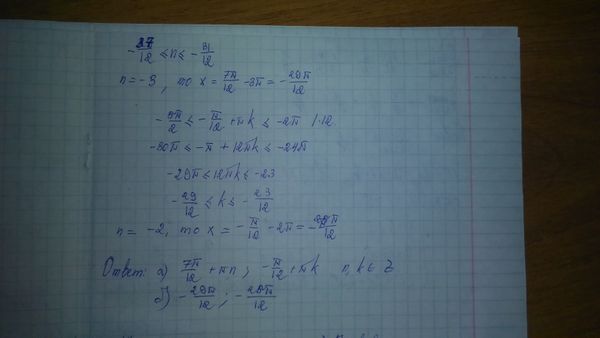 -37/12 ≤ n ≤ -31/12
n = -3, то x = 7π/12 - 3π = -29π/12
-5π/2 ≤ -π/12 + πk ≤ -2π |·12
-30π ≤ -π + 12πk ≤ -24π
-29π ≤ 12πk ≤ -23
-29/12 ≤ k ≤ -23/12
n = -2, то x = -π/12 - 2π = -25π/12
Ответ: а) 7π/12 + πn; -π/12 + πk n, k ∈ Z
б) -29π/12; -25π/12